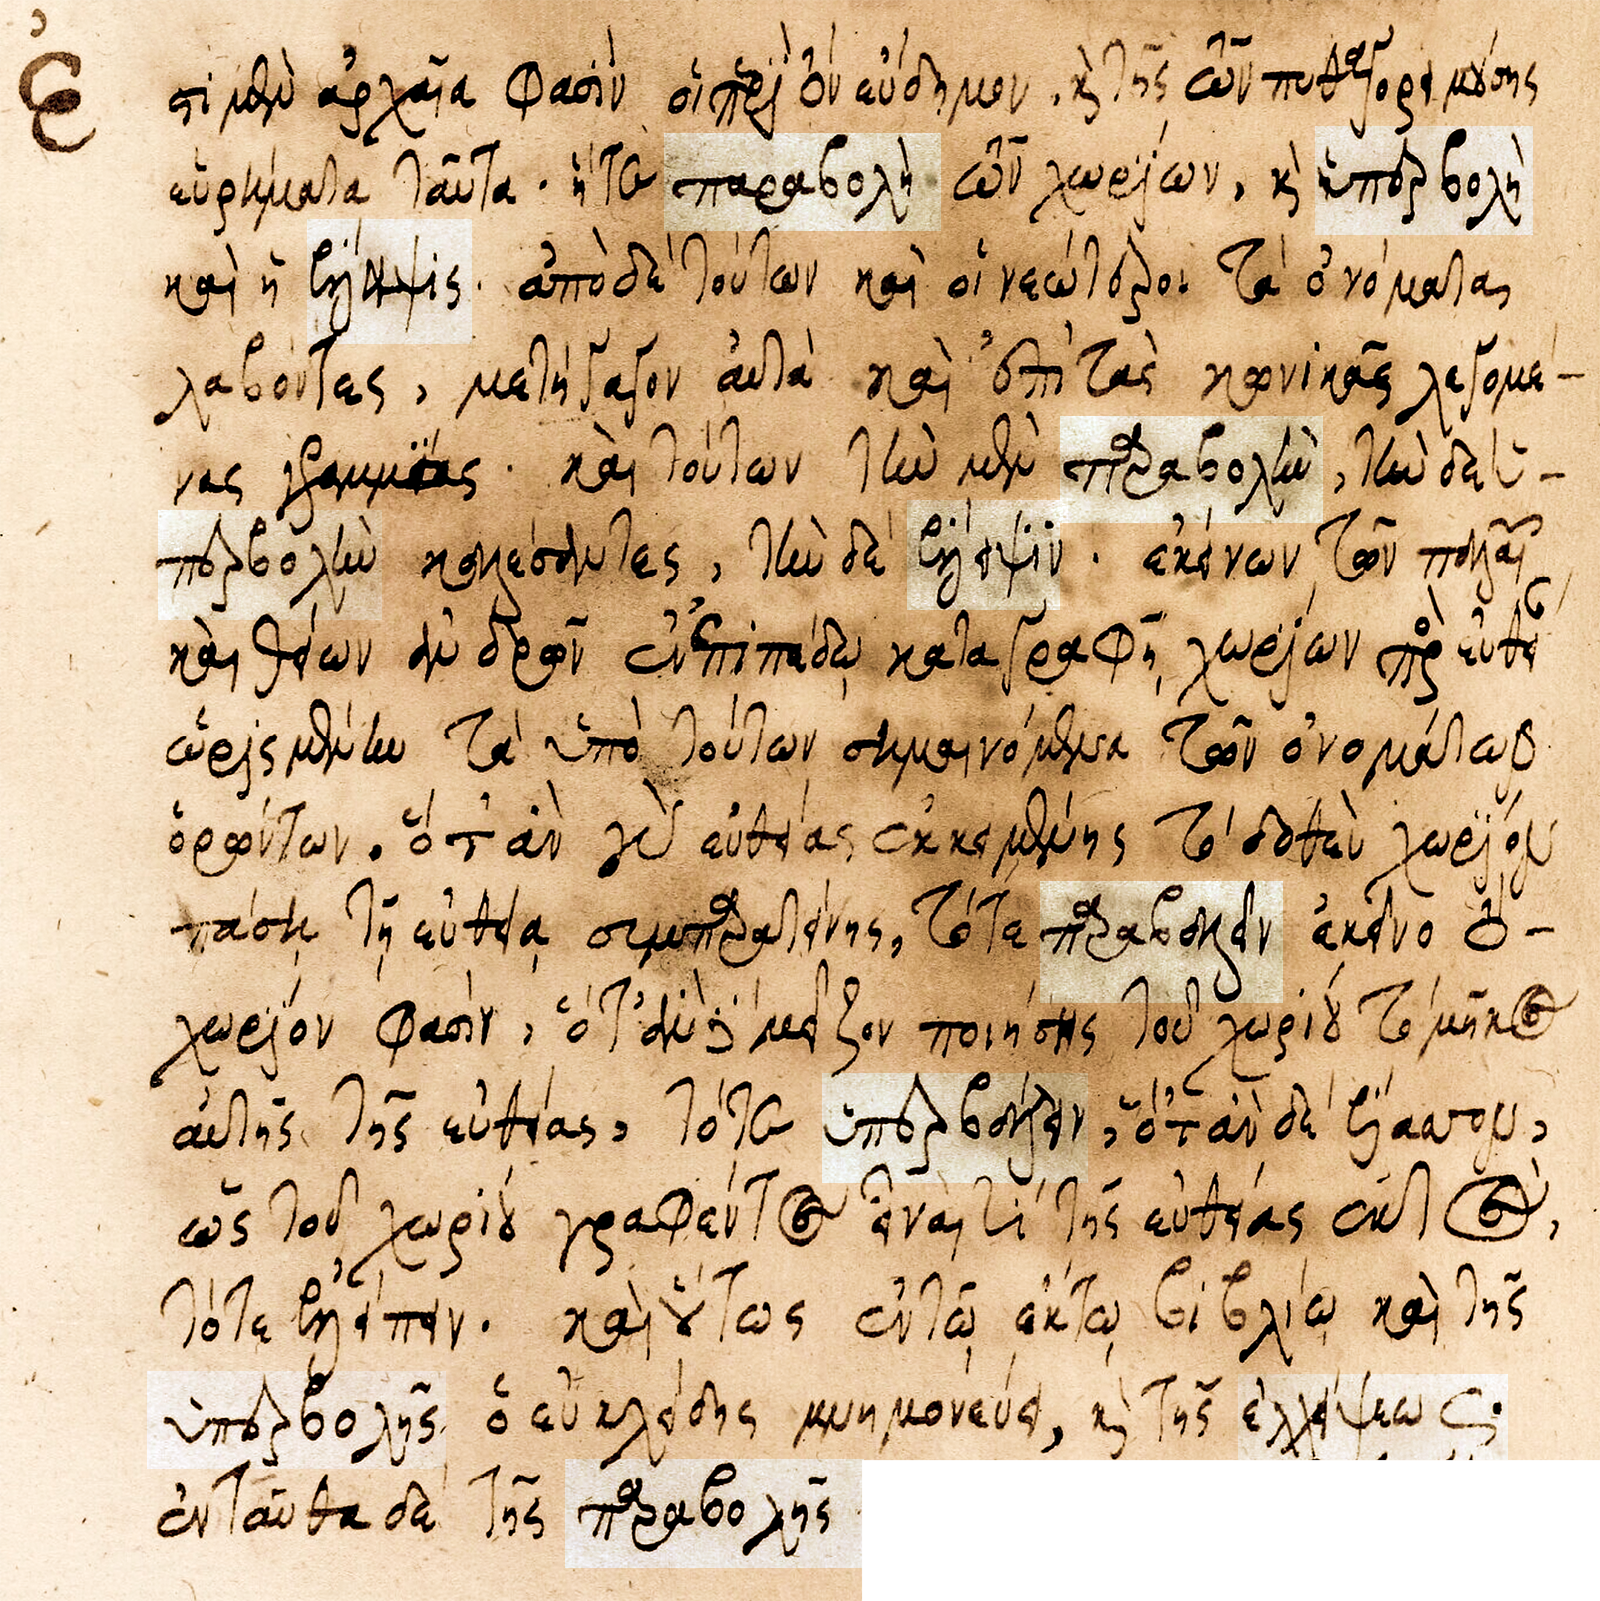 Ἔστι μὲν ἀρχαῖα φασὶν οἱ περὶ τὸν εὔδημον, καὶ τῆς τῶν πυθαγορείων μούσης
εὑρήματα ταῦτα· ἥτε παραβολὴ τῶν χωρίων, καὶ ἡ ὑπερβολὴ
καὶ ἡ ἔλλειψις· ἀπὸ δὲ τούτων καὶ οἱ νεώτεροι τὰ ὀνόματα
λαβόντες, μετήγαγον αὐτὰ καὶ ἐπὶ τὰς κωνικὰς λεγομέ-
νας γραμμὰς· καὶ τούτων τὴν μὲν παραβολὴν, τὴν δὲ ὑ-
περβολὴν καλέσαντες, τὴν δὲ ἔλλειψιν· ἐκείνων τῶν παλαι
καὶ θείων ἀνδρῶν ἐν ἐπιπέδῳ καταγραφῇ χωρίων πρὸς εὐθεῖ
ὡρισμένην τὰ ὑπὸ τούτων σημαινόμενα τῶν ὀνομάτων
ὁρώντων. ὅταν γὰρ εὐθείας ἐκκειμένης τὸ δοθὲν χωρίον
πάσῃ τῇ εὐθείᾳ συμπαρατείνης, τότε παραβαλεῖν ἐκεῖνο τὸ
χωρίον φασὶν, ὅταν δὲ μεῖζον ποιήσῃς τοῦ χωρίου τὸ μῆκος
αὐτῆς τῆς εὐθείας, τότε ὑπερβάλλειν, ὅταν δὲ ἔλασσον,
ὡς τοῦ χωρίου γραφέντος εἶναι τι τῆς εὐθείας ἐκτὸς,
τότε ἐλλείπειν. καὶ οὕτως ἐν τῷ ἕκτῳ βιβλίῳ καὶ τῆς
ὑπερβολῆς ὁ εὐκλείδης μνημονεύει, καὶ τῆς ἐλλείψεως·
ἐνταῦθα δὲ τῆς παραβολῆς